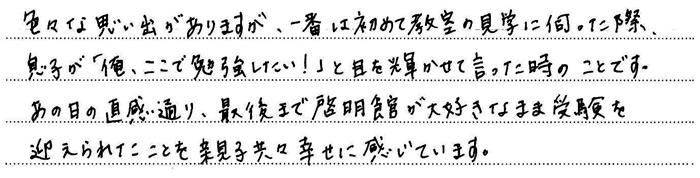 色々な思い出がありますが、一番は初めて教室の見学に伺った際、
息子が「俺、ここで勉強したい！」と目を輝かせて言った時のことです。
あの日の直感通り、最後まで啓明館が大好きなまま受験を
迎えられたことを親子共々幸せに感じています。